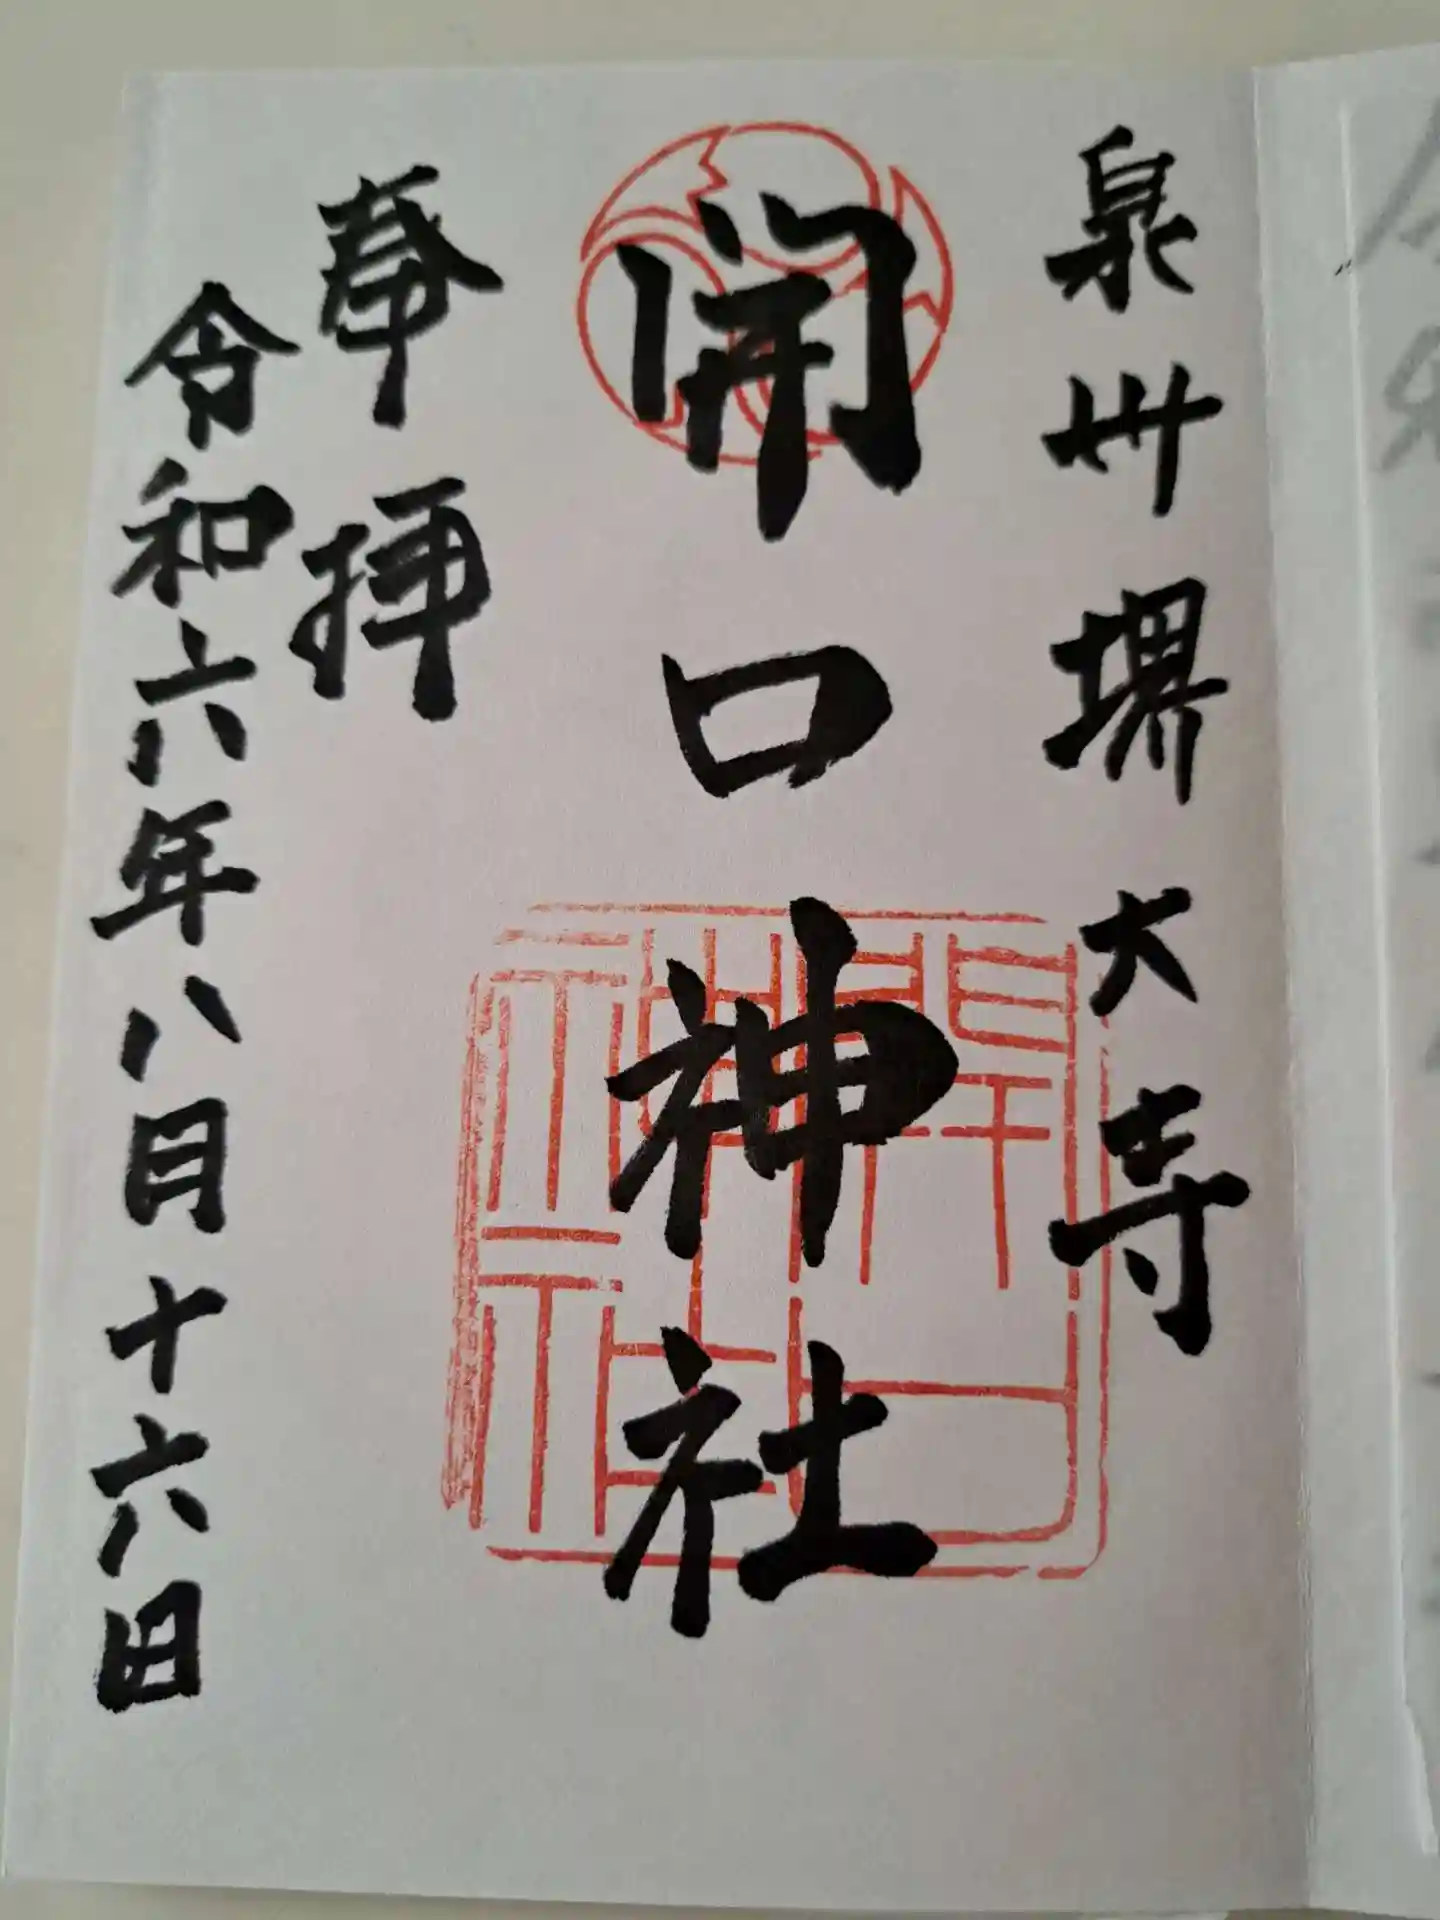 泉州堺大寺
開口神社
奉拝
令和六年八月十六日
開口
神社